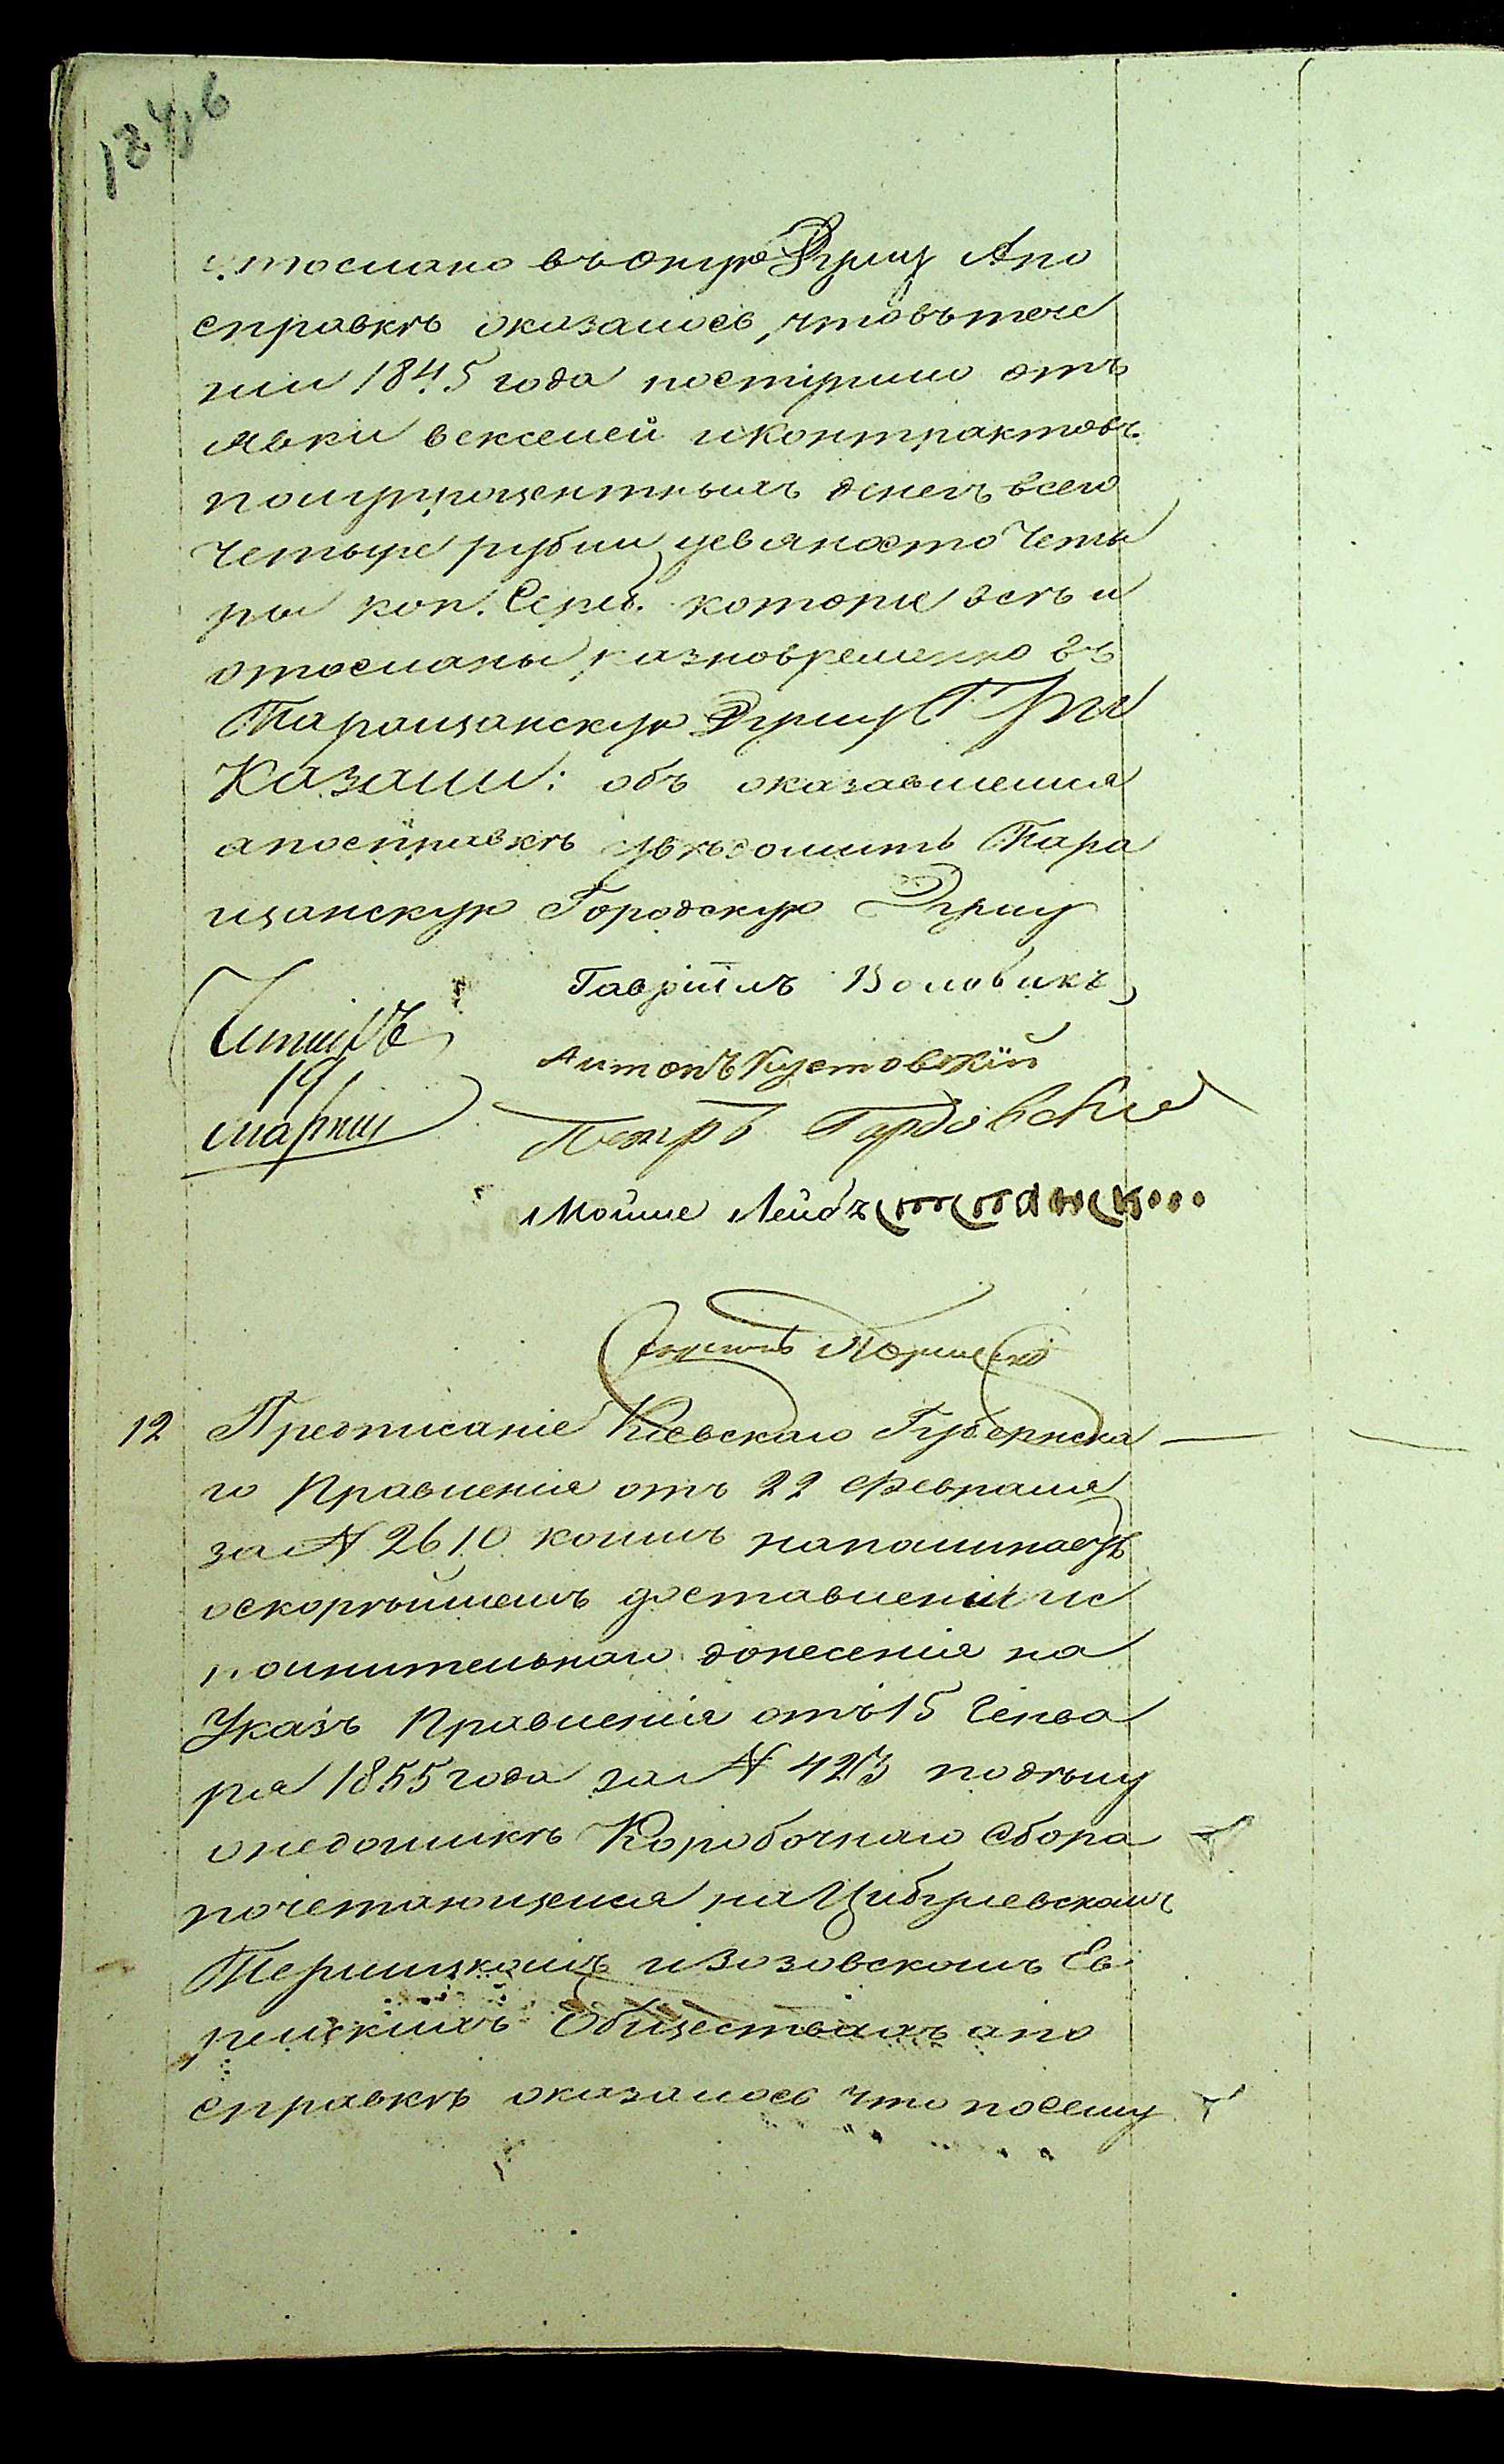 отослано въ онную Думу А по
справкѣ оказалось, что въ тече
нии 1845 года поступило отъ
явки векселей и контрактовъ
полупроцентныхъ денегъ всего
четыре рубли девяносто четы
ры коп. Сереб. которые всѣ и
отосланы разновременно въ
Таращанскую Думу При
Казали: объ оказавшемся
а по справкѣ увѣдомить Тара
щанскую Городскую Думу
Гавріилъ Воловикъ
19
марта
Антонъ Кустовскій
Петръ Гардовскій
Мойше Лейбъ
12 Предписаніе Кіевскаго Губернска
го Правленія отъ 22 Февраля
за № 2610 коимъ напоминаетъ
о скорѣйшемъ доставленіи ис
полнительнаго донесенія на
Указъ Правленія отъ 15 Генва
ря 1855 года за № 423 по дѣлу
о недоимкѣ Коробочнаго Сбора
почетающемся на Цибулевскомъ
Терлицкомъ и Зозовскомъ Ев
рейскихъ Обществахъ а по
справкѣ оказалось что по сему